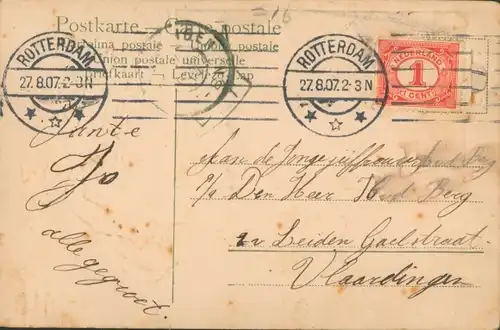 Postkarte postale
postale Union postale
Union postale universelle
Briefkaart
ROTTERDAM
27.8.07.2-3N
ROTTERDAM
27.8.07.2-3N
NEDERLAND
1
CENT
Tante
Jo
alle gegroet.
Aan de Jonge juffrouw
p/a Den Heer Berg
Leiden Gaelstraat
Vlaardingen